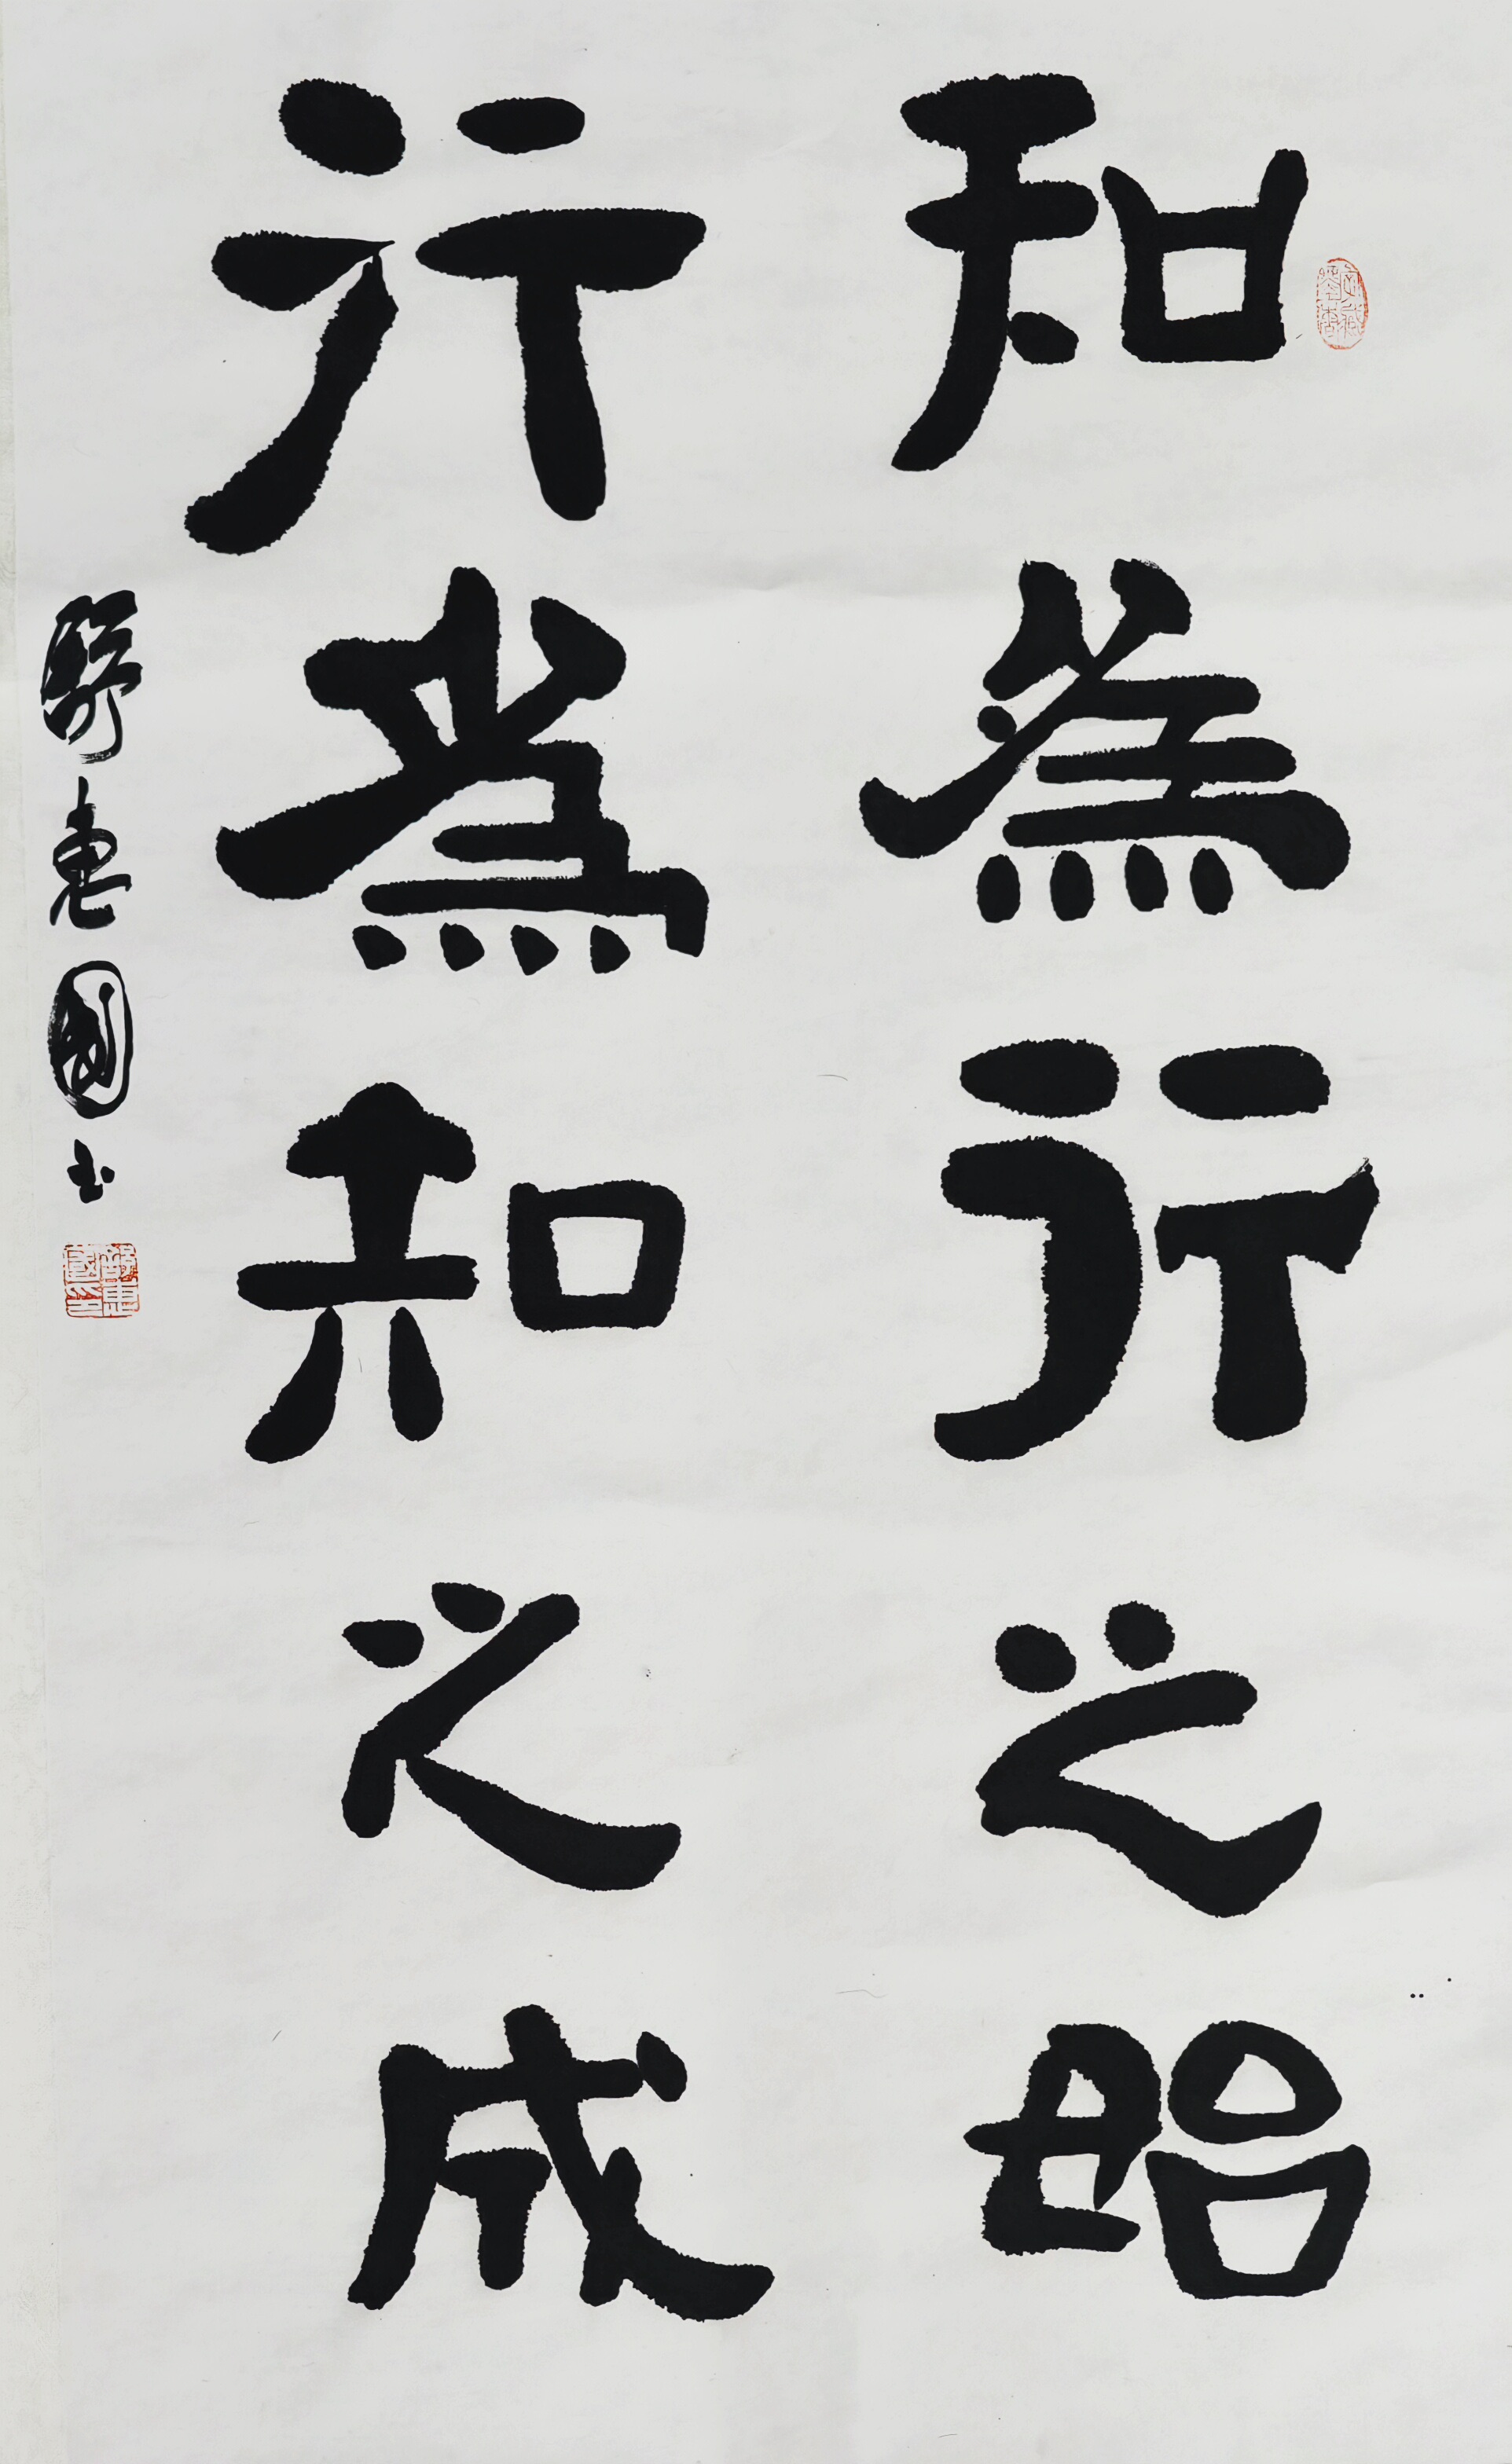 知為行之始
行為知之成
惠國书